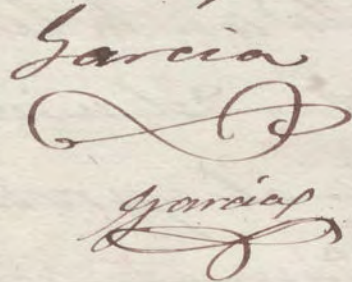 Garcia
Garcias